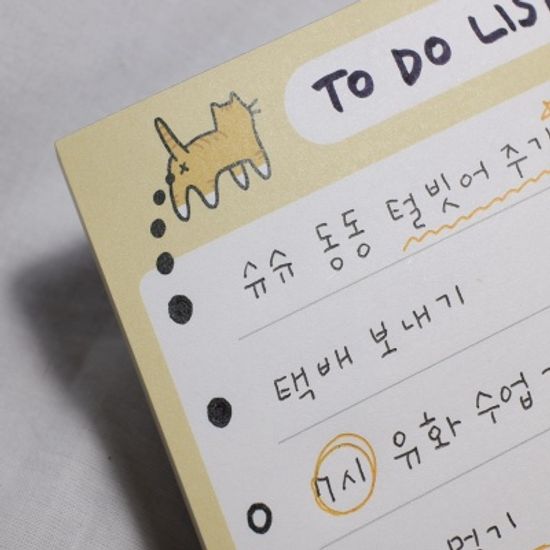 TO DO LIST
슈슈 동동 털빗어 주기
택배 보내기
7시 유화 수업
먹기